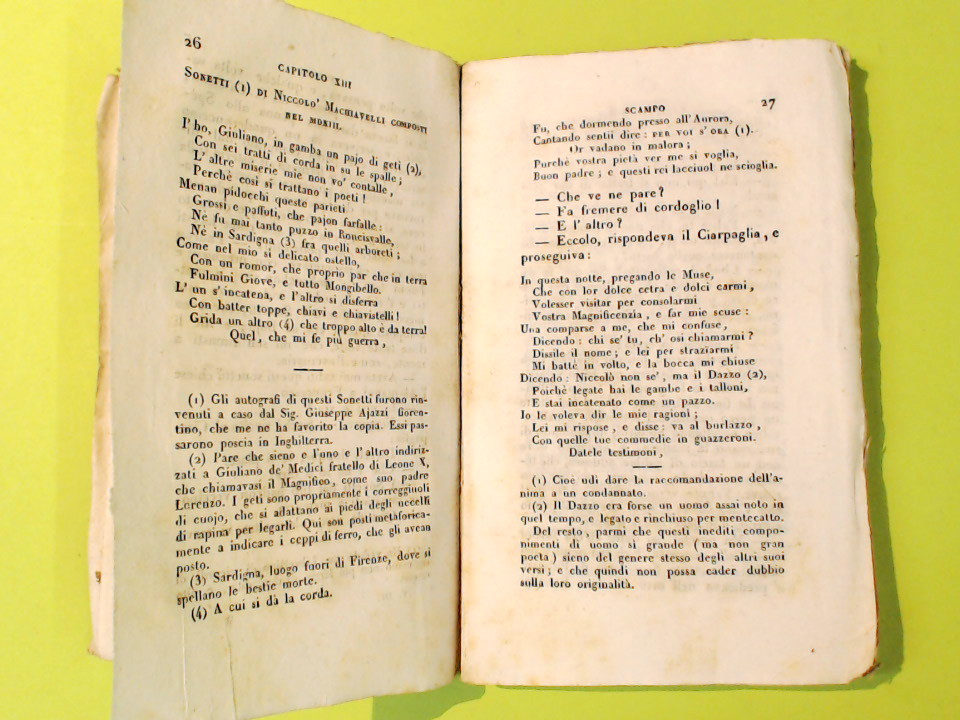 26
CAPITOLO XIII
SONETTI (1) DI NICCOLO' MACHIAVELLI COMPOSTI
NEL MDXIII.
I' ho, Giuliano, in gamba un pajo di geti (2),
Con sei tratti di corda in su le spalle;
L' altre miserie mie non vo' contalle,
Perchè così si trattano i poeti!
Menan pidocchi queste parieti
Grossi e paffuti, che pajon farfalle:
Nè fu mai tanto puzzo in Roncisvalle,
Nè in Sardigna (3) fra quelli arboreti;
Come nel mio sì delicato ostello,
Con un romor, che proprio par che in terra
Fulmini Giove, e tutto Mongibello.
L' un s' incatena, e l'altro si disferra
Con batter toppe, chiavi e chiavistelli!
Grida un altro (4) che troppo alto è da terra!
Quel, che mi fe più guerra,
(1) Gli autografi di questi Sonetti furono rin-
venuti a caso dal Sig. Giuseppe Ajazzi fioren-
tino, che me ne ha favorito la copia. Essi pas-
sarono poscia in Inghilterra.
(2) Pare che sieno e l'uno e l'altro indiriz-
zati a Giuliano de' Medici fratello di Leone X,
che chiamavasi il Magnifico, come suo padre
Lorenzo. I geti sono propriamente i correggiuoli
di cuojo, che si adattano ai piedi degli uccelli
di rapina per legarli. Qui son posti metaforica-
mente a indicare i ceppi di ferro, che gli avean
posto.
(3) Sardigna, luogo fuori di Firenze, dove si
spellano le bestie morte.
(4) A cui si dà la corda.
SCAMPO
27
Fu, che dormendo presso all' Aurora,
Cantando sentii dire: PER VOI S' ORA (1).
Or vadano in malora;
Purchè vostra pietà ver me si voglia,
Buon padre; e questi rei lacciuol ne scioglia.
— Che ve ne pare?
— Fa fremere di cordoglio!
— E l' altro?
— Eccolo, rispondeva il Ciarpaglia, e
proseguiva:
In questa notte, pregando le Muse,
Che con lor dolce cetra e dolci carmi,
Volesser visitar per consolarmi
Vostra Magnificenzia, e far mie scuse:
Una comparse a me, che mi confuse,
Dicendo: chi se' tu, ch' osi chiamarmi?
Dissile il nome; e lei per straziarmi
Mi battè in volto, e la bocca mi chiuse
Dicendo: Niccolò non se', ma il Dazzo (2),
Poichè legate hai le gambe e i talloni,
E stai incatenato come un pazzo.
Io le voleva dir le mie ragioni;
Lei mi rispose, e disse: va al burlazzo,
Con quelle tue commedie in guazzeroni.
Datele testimoni,
(1) Cioè udi dare la raccomandazione dell'a-
nima a un condannato.
(2) Il Dazzo era forse un uomo assai noto in
quel tempo, e legato e rinchiuso per mentecatto.
Del resto, parmi che questi inediti compo-
nimenti di uomo sì grande (ma non gran
poeta) sieno del genere stesso degli altri suoi
versi; e che quindi non possa cader dubbio
sulla loro originalità.